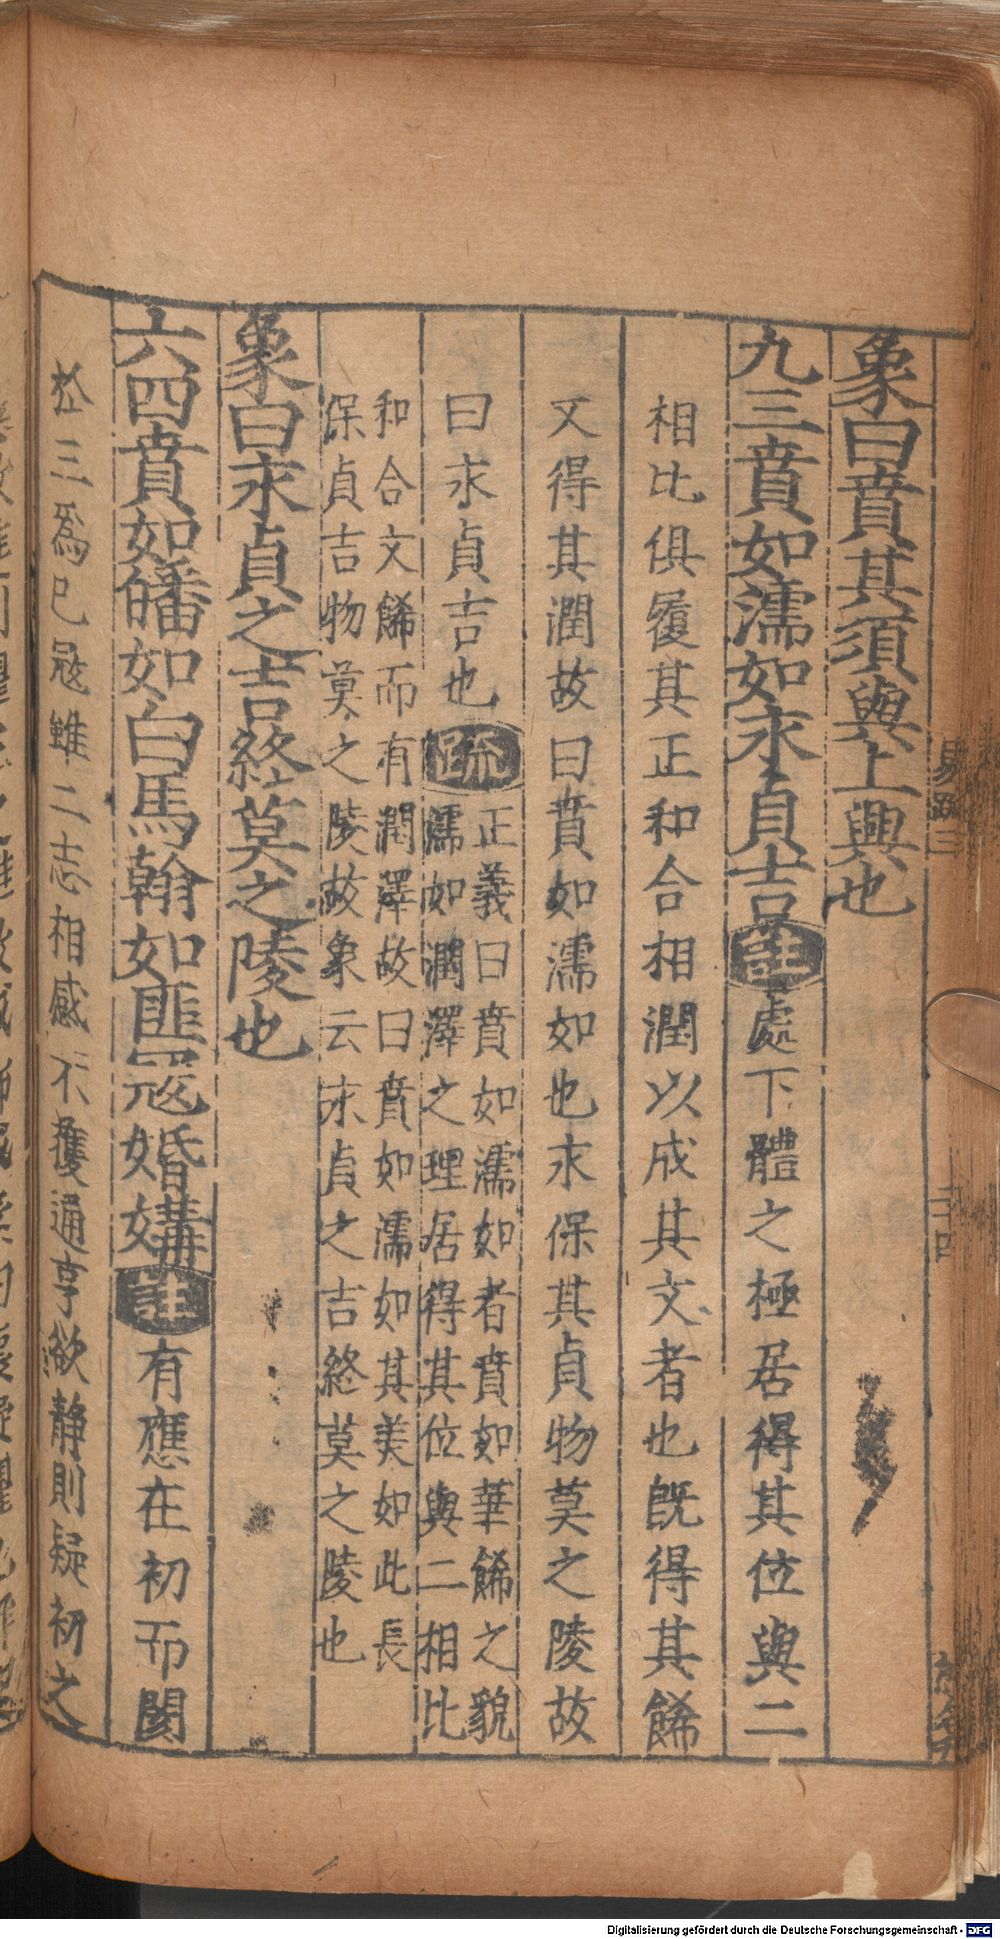 象曰賁其須與上興也
九三賁如濡如永貞吉註處下體之極居得其位與二
相比俱履其正和合相潤以成其文者也既得其餙
又得其潤故曰賁如濡如也永保其貞物莫之陵故
曰永貞吉也疏正義曰賁如濡如者賁如華餙之貌
濡如潤澤之理居得其位與二相比
和合文餙而有潤澤故曰賁如濡如其美如此長
保貞吉物莫之陵故象云永貞之吉終莫之陵也
象曰永貞之吉終莫之陵也
六四賁如皤如白馬翰如匪寇婚媾註有應在初而閡
於三爲己寇雖二志相感不獲通亨欲静則疑初之
易疏三
二十四
Digitalisierung gefördert durch die Deutsche Forschungsgemeinschaft - DFG